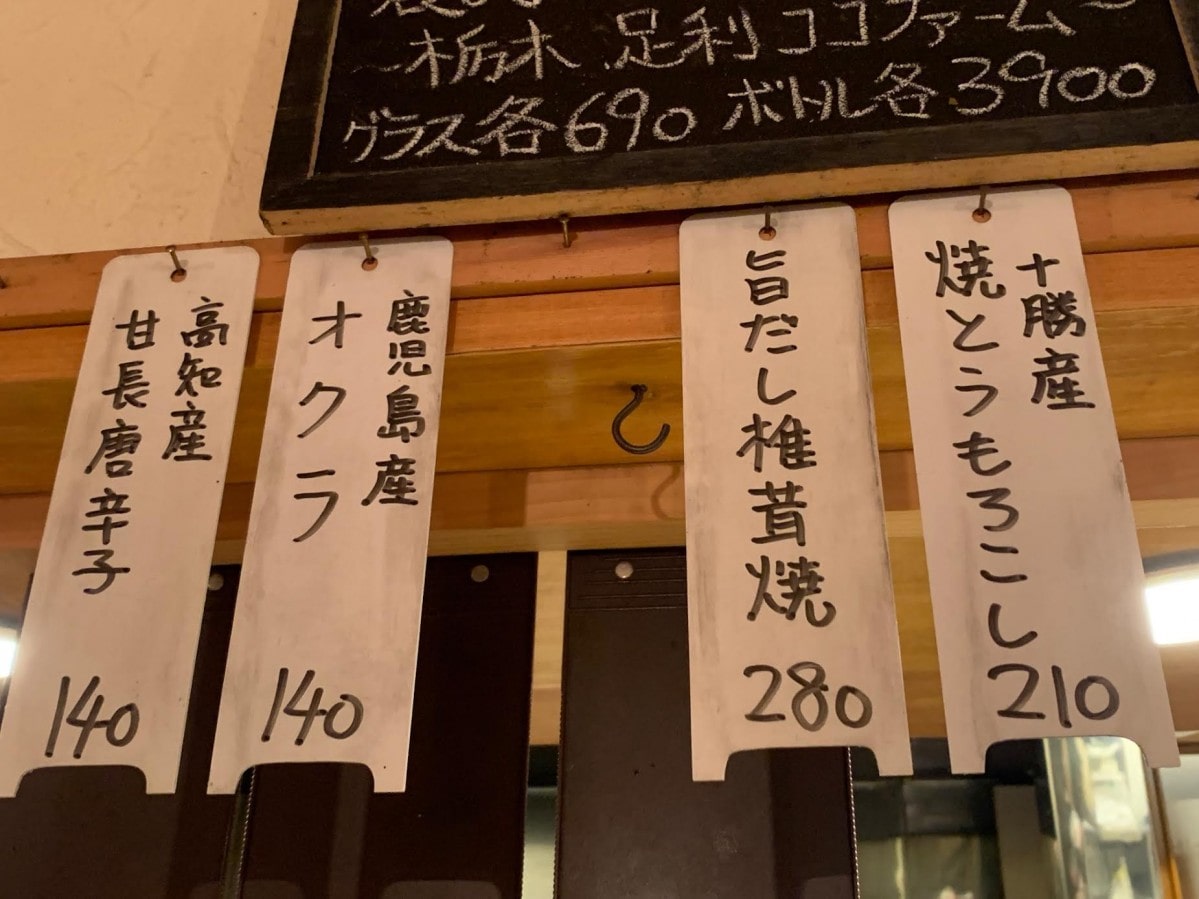 ~栃木、足利ココファーム~
グラス各690 ボトル各3900
十勝産
焼とうもろこし
210
旨だし椎茸焼
280
鹿児島産
オクラ
140
高知産
甘長唐辛子
140